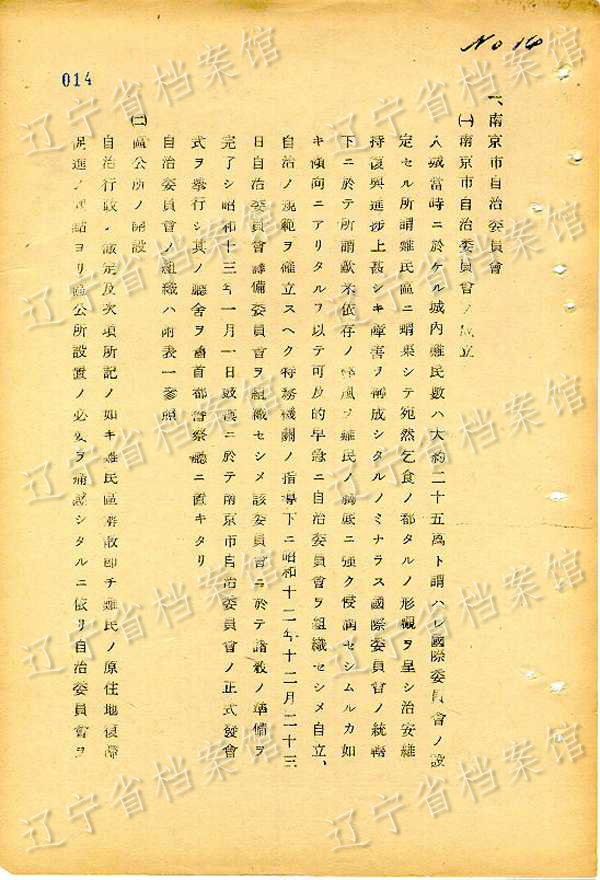 No 14
014
一、南京市自治委員會
㈠南京市自治委員會ノ成立
入城當時ニ於ケル城內難民數ハ大約二十五萬ト謂ハレ國際委員會ノ設
定セル所謂難民區ニ蝟集シテ宛然乞食ノ都タルノ形觀ヲ呈シ治安維
持復興進捗上甚シキ障害ヲ構成シタルノミナラス國際委員會ノ統轄
下ニ於テ所謂歐米依存ノ弊風ヲ難民ノ胸底ニ強ク侵潤セシムルカ如
キ傾向ニアリタルヲ以テ可及的早急ニ自治委員會ヲ組織セシメ自立、
自治ノ規範ヲ確立スヘク特務機關ノ指導下ニ昭和十二年十二月二十三
日自治委員會準備委員會ヲ組織セシメ該委員會ニ於テ諸般ノ準備ヲ
完了シ昭和十三年一月一日鼓樓ニ於テ南京市自治委員會ノ正式發會
式ヲ擧行シ其ノ廳舍ヲ舊首都警察廳ニ置キタリ
自治委員會ノ組織ハ附表一參照
㈡區公所ノ開設
自治行政ノ設定及次項所記ノ如キ難民區解散卽チ難民ノ原住地復歸
促進ノ見地ヨリ區公所設置ノ必要ヲ痛感シタルニ依リ自治委員會ヲ
辽宁省档案馆
辽宁省档案馆
辽宁省档案馆
辽宁省档案馆
辽宁省档案馆
辽宁省档案馆
辽宁省档案馆
辽宁省档案馆
辽宁省档案馆
辽宁省档案馆